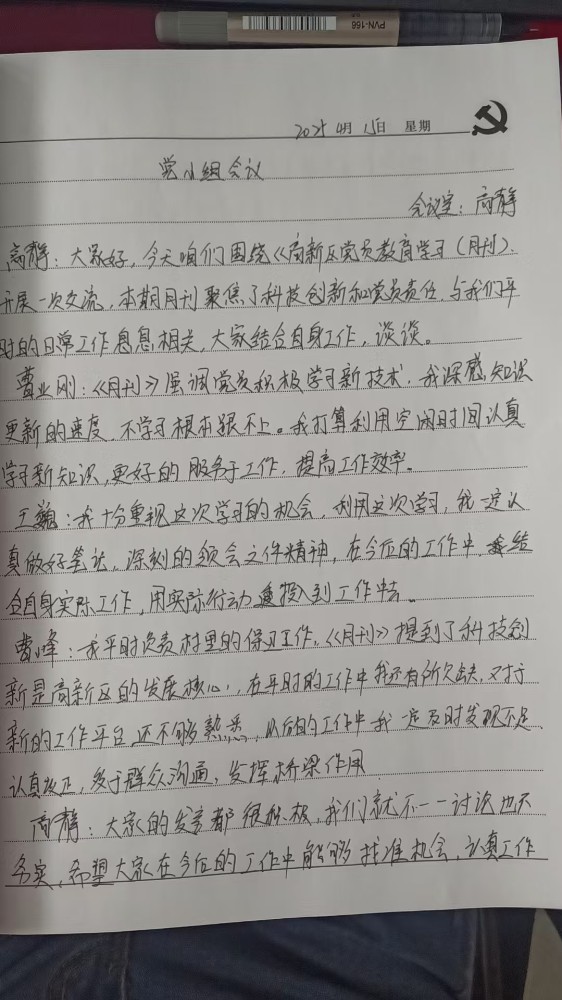 PVN-166
2025 4月 15日 星期
党小组会议
会议室：高静
高静：大家好，今天咱们围绕《高新区党员教育学习（月刊）
开展一次交流，本期月刊聚焦了科技创新和党员责任，与我们平
时的日常工作息息相关，大家结合自身工作，谈谈。
曹业刚：《月刊》强调党员积极学习新技术，我深感知识
更新的速度，不学习根本跟不上。我打算利用空闲时间认真
学习新知识，更好的服务于工作，提高工作效率。
王巍：我十分重视这次学习的机会，利用这次学习，我一定认
真做好笔记，深刻的领会文件精神，在今后的工作中 结
合自身实际工作，用实际行动 投入到工作中去。
曹峰：我平时负责村里的保卫工作，《月刊》提到了科技创
新是高新区的发展核心，在平时的工作中我还有所欠缺，对于
新的工作平台还不够熟悉，以后的工作中我一定及时发现不足，
认真改正，多于群众沟通，发挥桥梁作用
高静：大家的发言都很积极，我们就不一一讨论也不
务实，希望大家在今后的工作中能够找准机会，认真工作